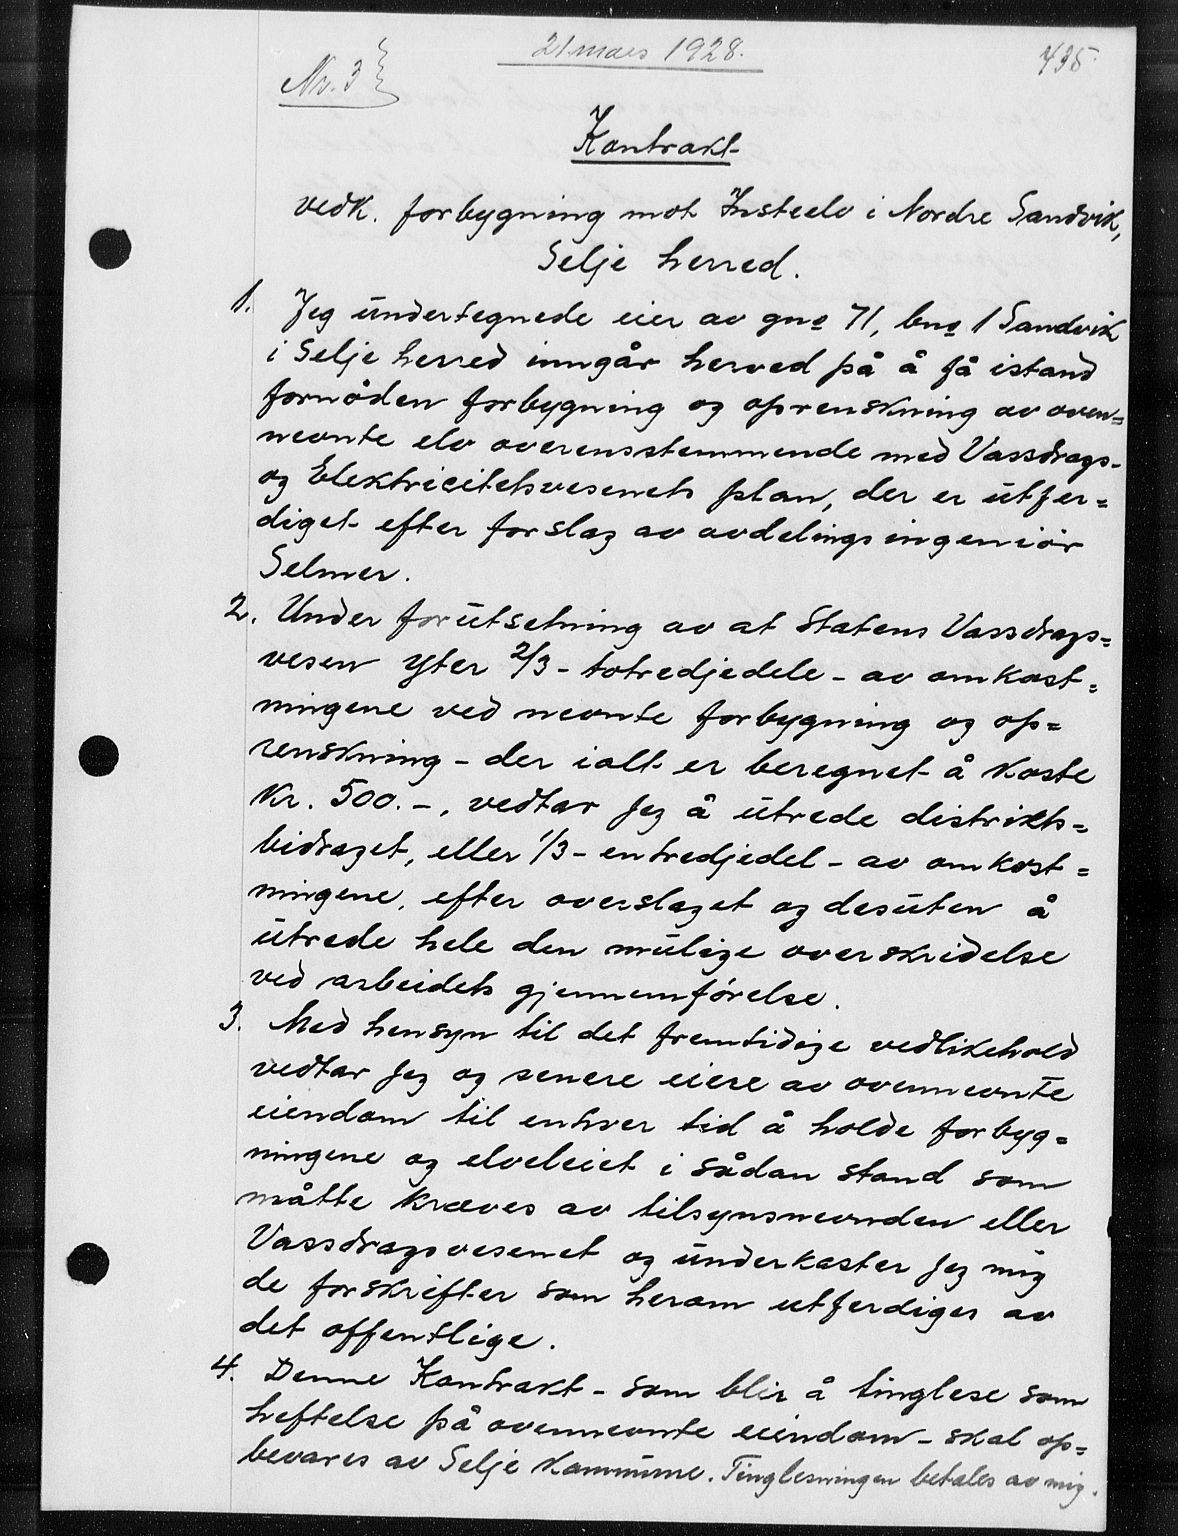 21 mars 1928.
435
Nr. 3
Kontrakt
vedk. forbygning mot Insteelv i Nordre Sandvik,
Selje herred.
1. Jeg undertegnede eier av gno 71, bno 1 Sandvik
i Selje herred inngår herved på å få istand
fornøden forbygning og oprenskning av oven=
nevnte elv overensstemmende med Vassdrags-
og Elektricitetsvesenets plan, der er utfer=
diget efter forslag av avdelingsingeniør
Selmer.
2. Under forutsetning av at Statens Vassdrags=
vesen yter 2/3 - totredjedele - av omkost=
ningene ved nevnte forbygning og op=
renskning - der ialt er beregnet å koste
Kr. 500.-, vedtar jeg å utrede distrikts=
bidraget, eller 1/3 - entredjedel - av omkost=
ningene, efter overslaget og desuten å
utrede hele den mulige overskridelse
ved arbeidets gjennemførelse.
3. Med hensyn til det fremtidige vedlikehold
vedtar jeg og senere eiere av ovennevnte
eiendom til enhver tid å holde forbyg=
ningene og elveleiet i sådan stand som
måtte kræves av tilsynsnevnden eller
Vassdragsvesenet og underkaster jeg mig
de forskrifter som herom utferdiges av
det offentlige.
4. Denne Kontrakt - som blir å tinglese som
heftelse på ovennevnte eiendom - skal op=
bevares av Selje kommune. Tinglesningen betales av mig.